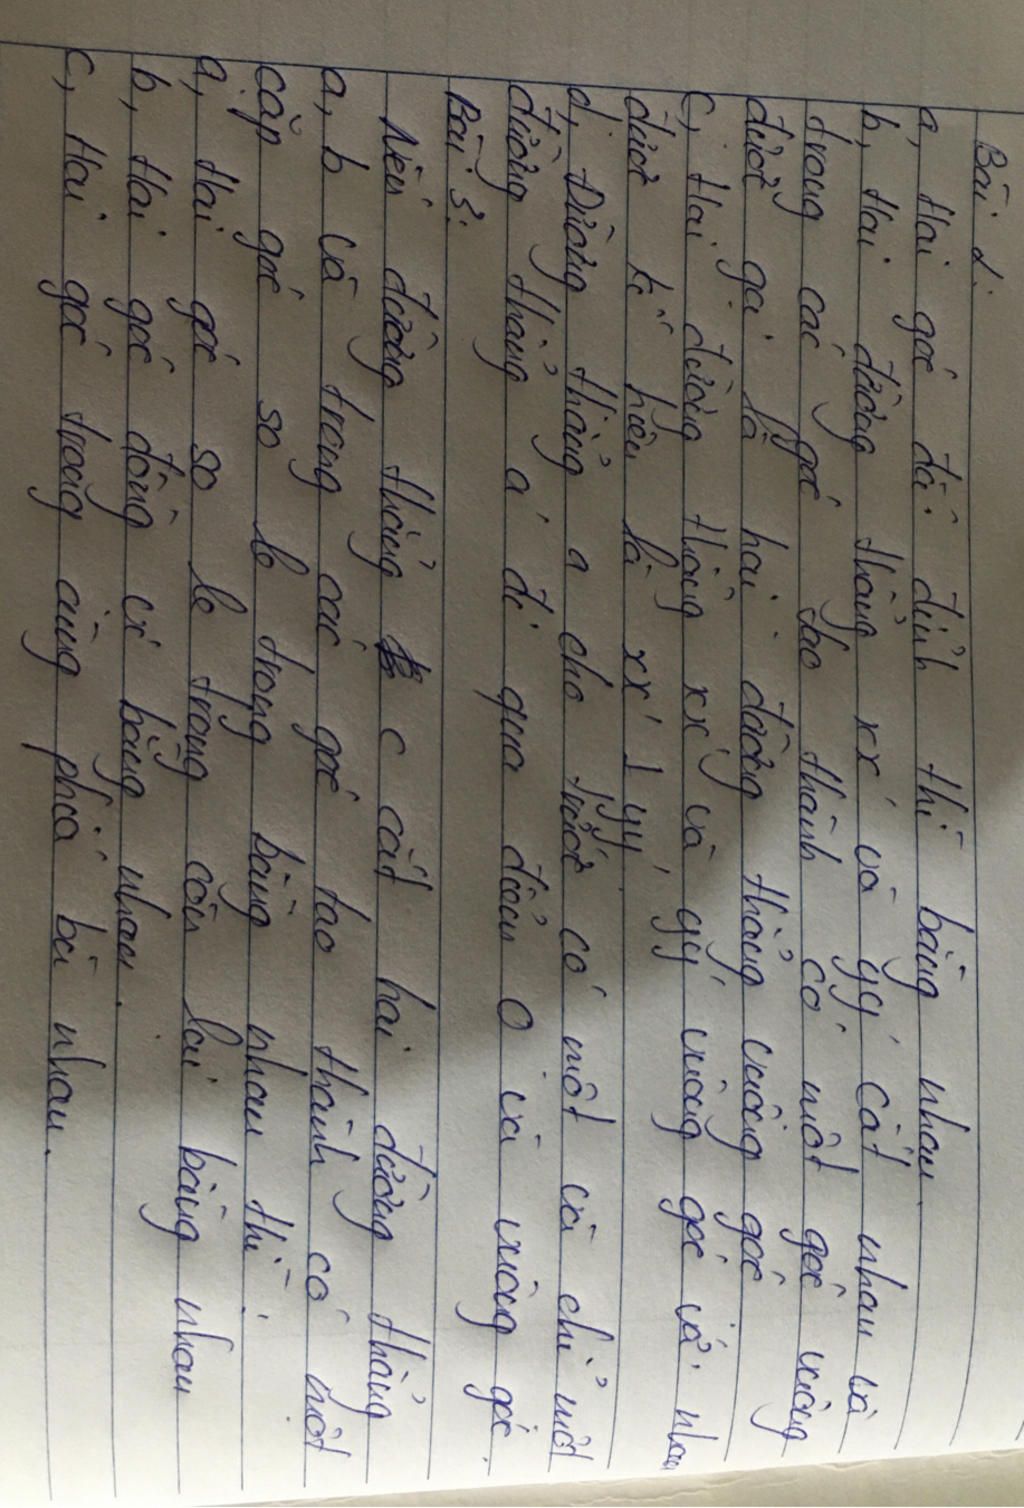 Bài 1:
a, Hai góc đối đỉnh thì bằng nhau.
b, Hai đường thẳng xx' và yy' cắt nhau và
trong các góc tạo thành có một góc vuông
được gọi là hai đường thẳng vuông góc
c, Hai đường thẳng xx' và yy' vuông góc với nhau
được kí hiệu là xx' ⊥ yy'
d, Đường thẳng a cho trước có một và chỉ một
đường thẳng a' đi qua điểm O và vuông góc.
Bài 3:
Nếu đường thẳng c cắt hai đường thẳng
a, b và trong các góc tạo thành có một
cặp góc so le trong bằng nhau thì:
a, Hai góc so le trong còn lại bằng nhau
b, Hai góc đồng vị bằng nhau.
c, Hai góc trong cùng phía bù nhau.